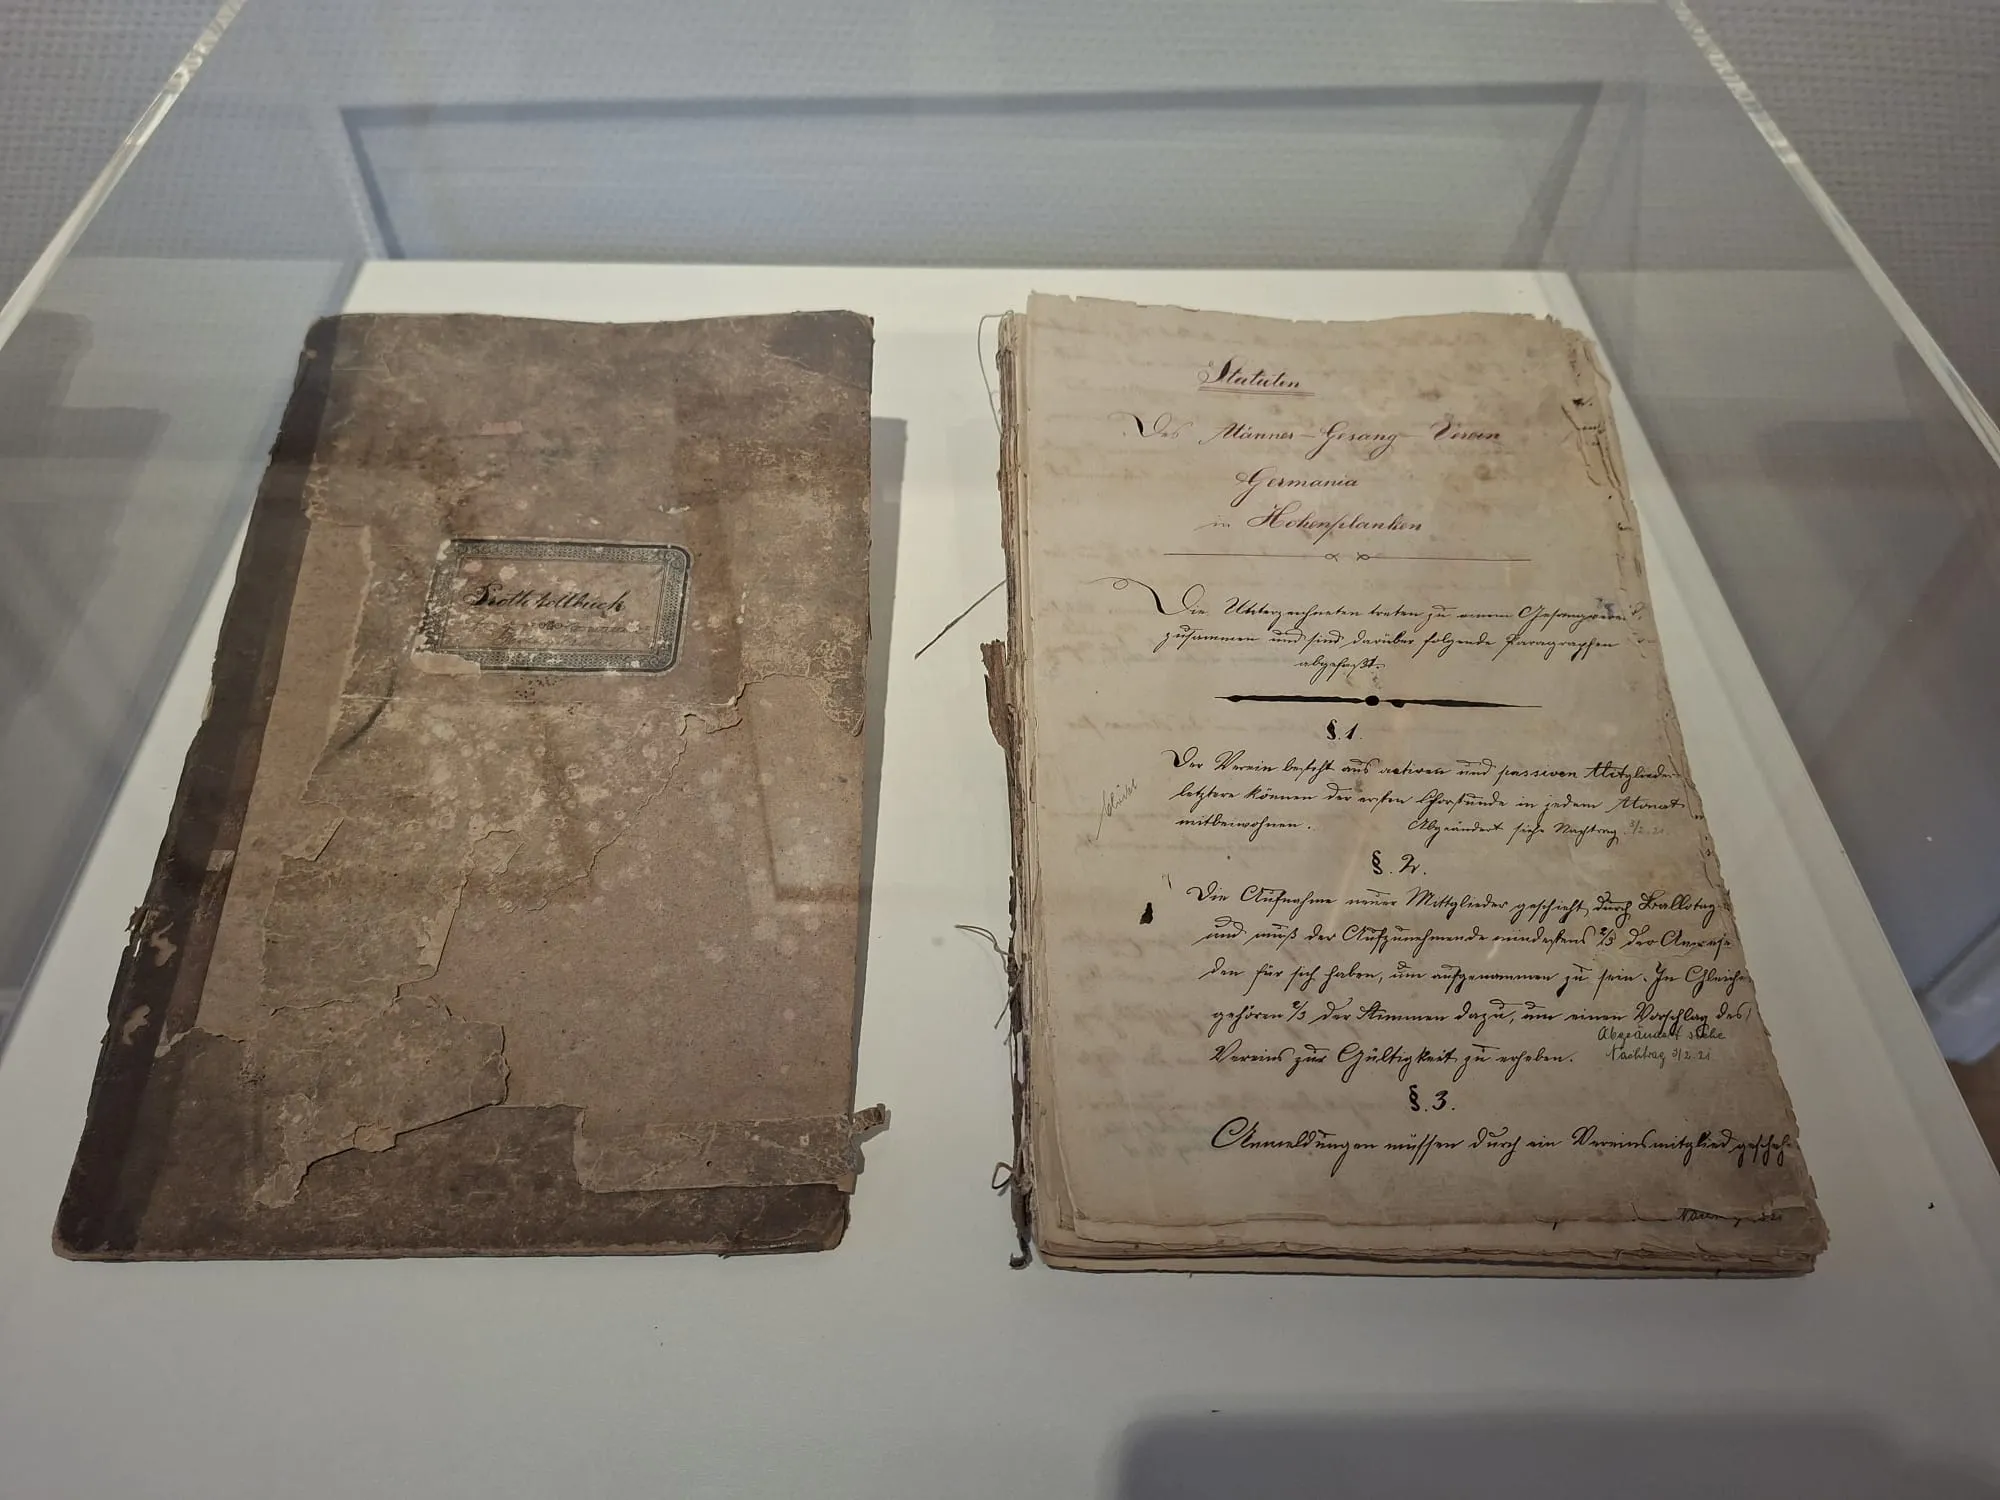 Protokollbuch
Statuten
Des Männer-Gesang-Verein
Germania
in Hohenplanken
Die Unterzeichneten treten zu einem Gesangverein
zusammen und sind darüber folgende Paragraphen
abgefaßt.
§. 1.
Der Verein besteht aus activen und passiven Mitglieder
letztere können der ersten Chorstunde in jedem Monat
mitbeiwohnen. Abgeändert siehe Nachtrag 3/2. 21.
§. 2.
Die Aufnahme neuer Mitglieder geschieht durch Ballotag
und muß der Aufzunehmende mindestens 2/3 der Anwese
den für sich haben, um aufgenommen zu sein. In Gleiche
gehören 2/3 der Stimmen dazu, um einen Vorschlag des
Abgeändert siehe
Vereins zur Gültigkeit zu erheben. Nachtrag 3/2. 21
§. 3.
Anmeldungen müssen durch ein Vereinsmitglied gescheh-